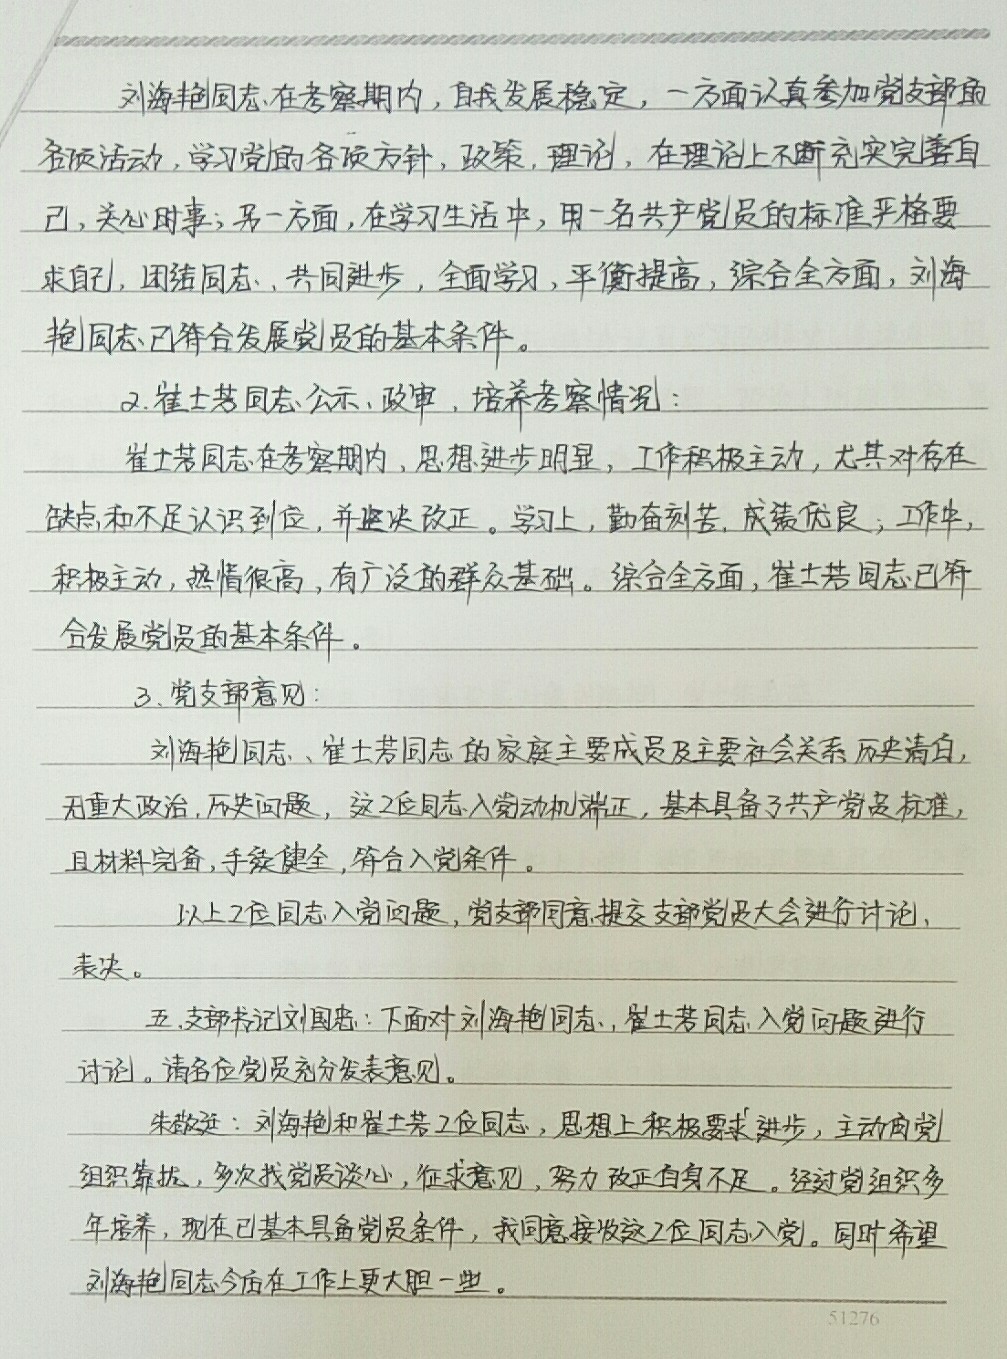 刘海艳同志在考察期内，自我发展稳定，一方面认真参加党支部的
各项活动，学习党的各项方针，政策，理论，在理论上不断充实完善自
己，关心时事；另一方面，在学习生活中，用一名共产党员的标准严格要
求自己，团结同志、共同进步，全面学习，平衡提高，综合全方面，刘海
艳同志已符合发展党员的基本条件。
2.崔士芳同志公示、政审、培养考察情况：
崔士芳同志在考察期内、思想进步明显，工作积极主动，尤其对存在
缺点和不足认识到位，并坚决改正。学习上，勤奋刻苦，成绩优良；工作中，
积极主动，热情很高，有广泛的群众基础。综合全方面，崔士芳同志已符
合发展党员的基本条件。
3、党支部意见：
刘海艳同志、崔士芳同志的家庭主要成员及主要社会关系历史清白，
无重大政治，历史问题，这2位同志入党动机端正，基本具备了共产党员标准，
且材料完备，手续健全，符合入党条件。
以上2位同志入党问题，党支部同意提交支部党员大会进行讨论、
表决。
五、支部书记刘国忠：下面对刘海艳同志、崔士芳同志入党问题进行
讨论。请各位党员充分发表意见。
朱敬廷：刘海艳和崔士芳2位同志，思想上积极要求进步，主动向党
组织靠拢，多次找党员谈心，征求意见，努力改正自身不足。经过党组织多
年培养，现在已基本具备党员条件，我同意接收这2位同志入党。同时希望
刘海艳同志今后在工作上更大胆一些。
51276